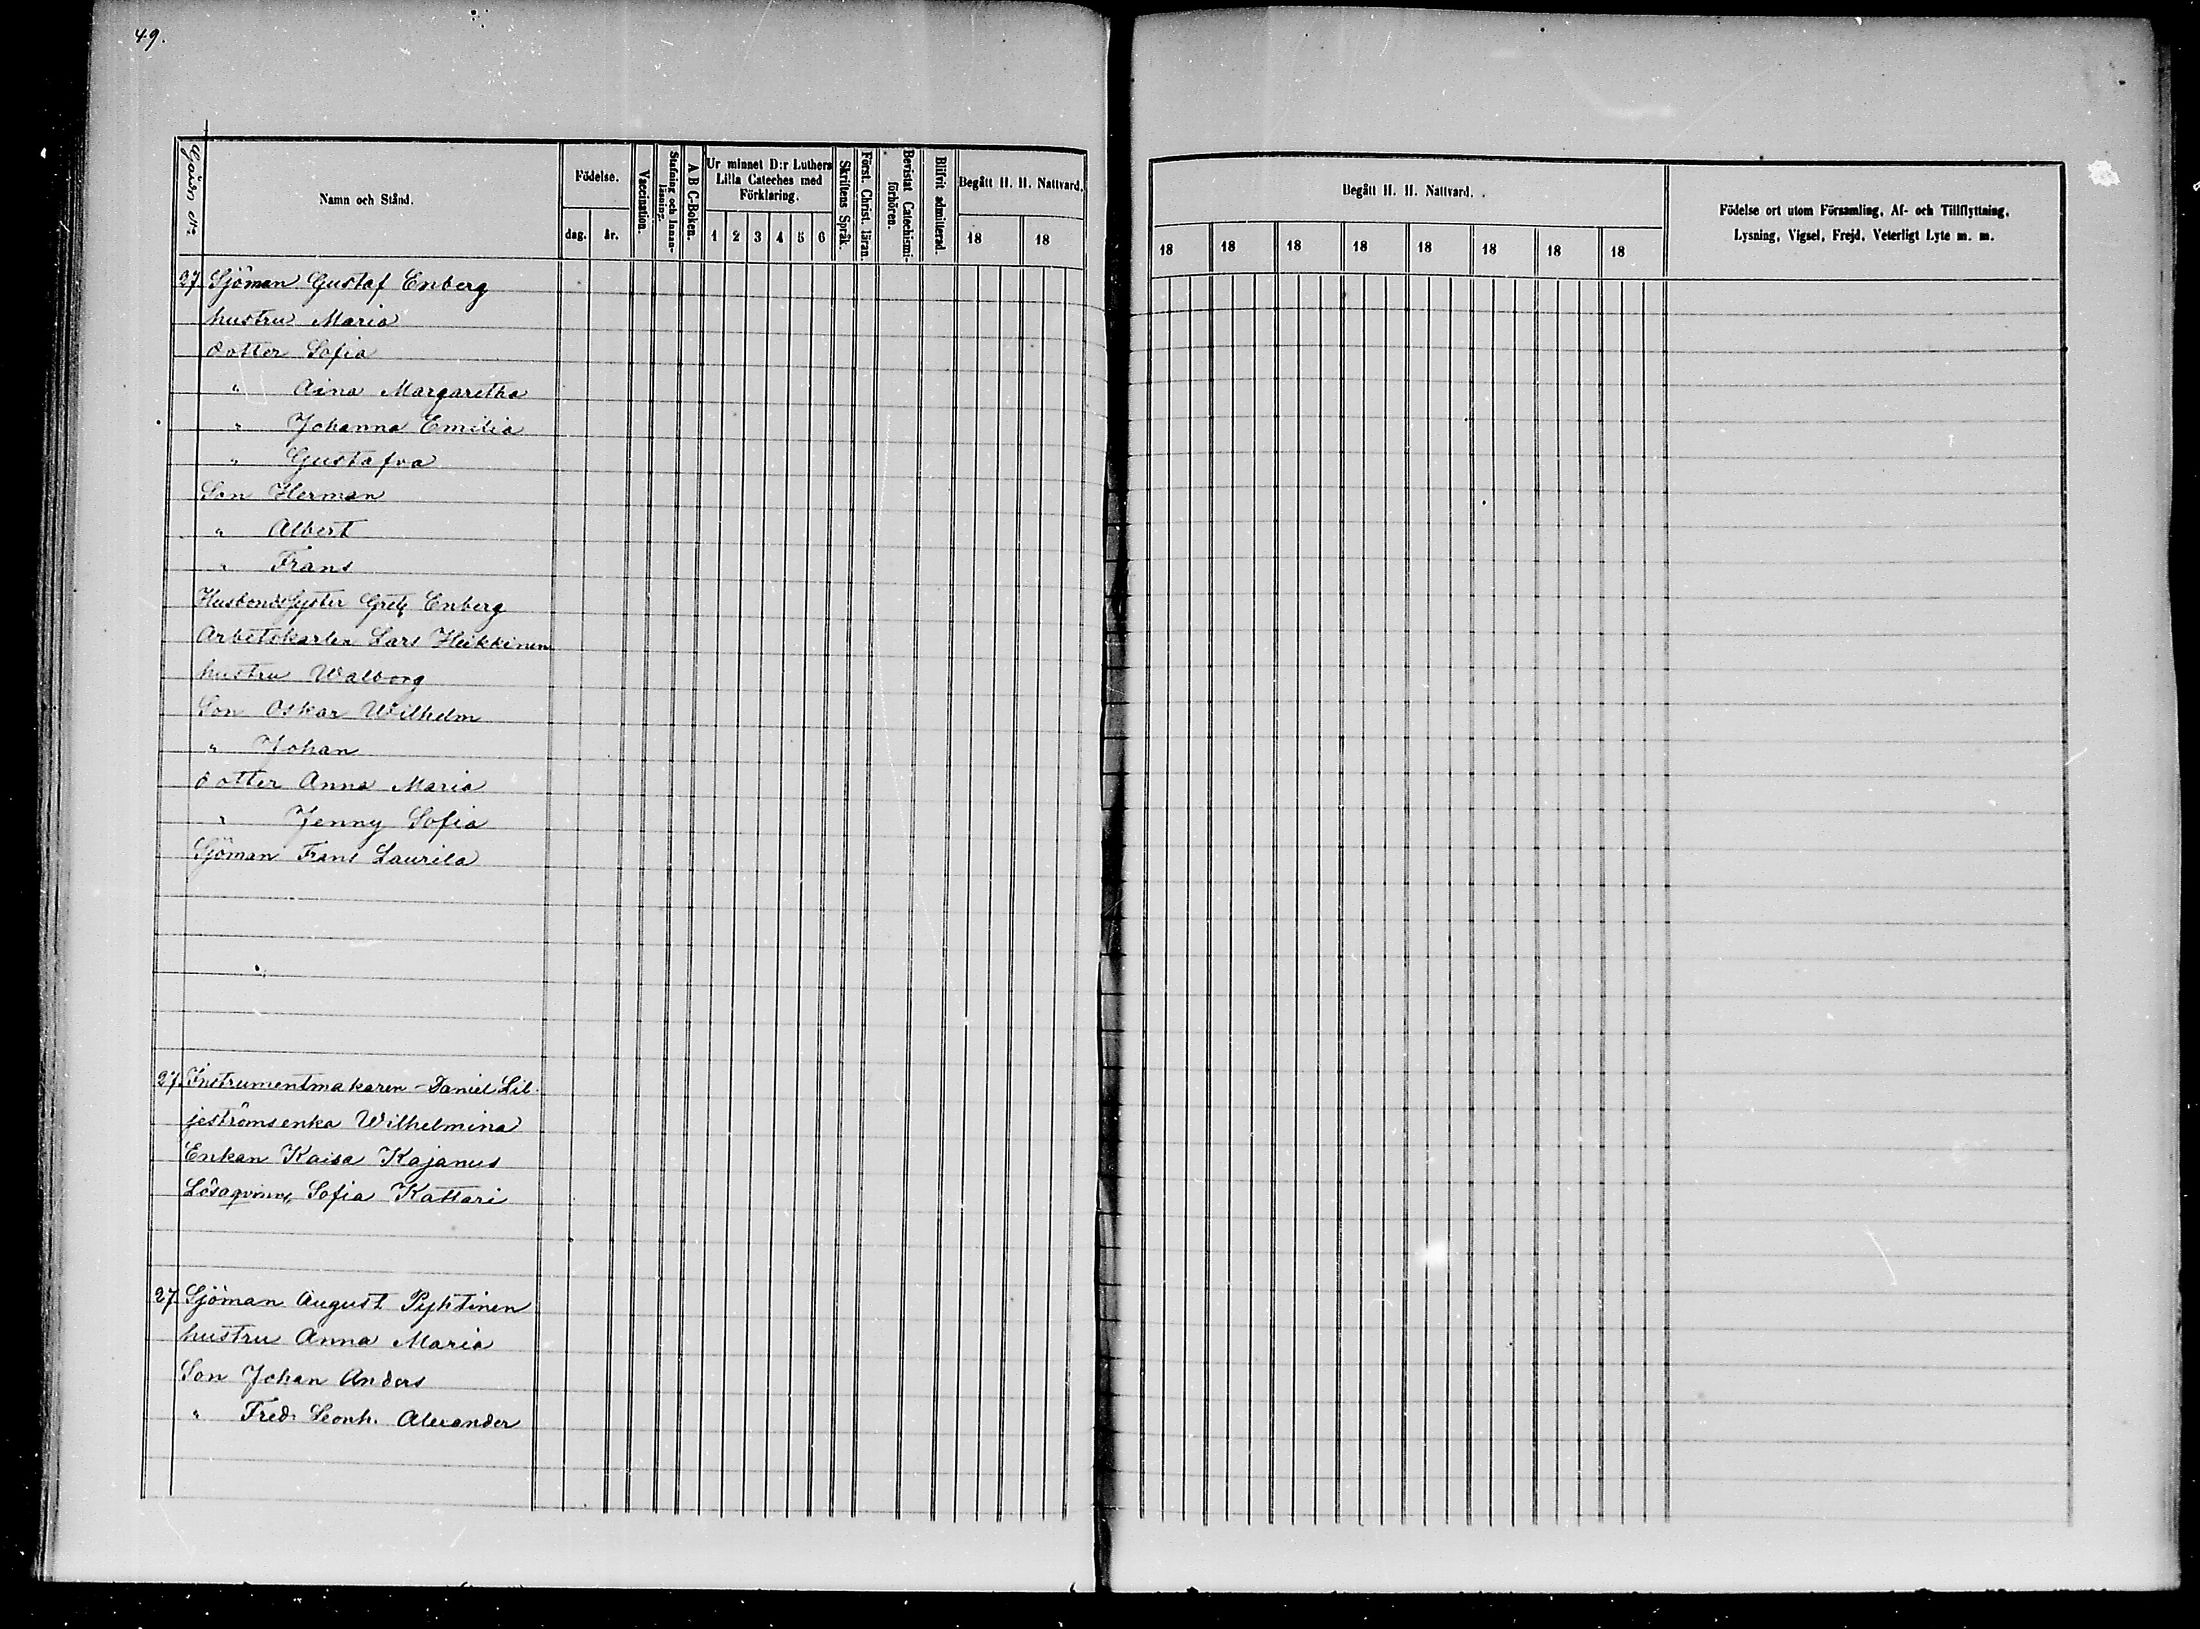 49.
Gård No
Namn och Stånd.
Födelse.
dag.
år.
Vaccination.
Stafning och Innan-
läsning.
A B C-Boken.
Ur minnet D:r Luthers
Lilla Cateches med
Förklaring.
1 2 3 4 5 6
Skriftens Språk.
Först. Christ. läran.
Bevistat Catechismi-
förhören.
Blifvit admitterad.
Begått H. H. Nattvard.
18 18
Begått H. H. Nattvard.
18 18 18 18 18 18 18 18
Födelse ort utom Församling, Af- och Tillflyttning,
Lysning, Vigsel, Frejd, Veterligt Lyte m. m.
27 Sjöman Gustaf Enberg
hustru Maria
dotter Sofia
" Aina Margaretha
" Johanna Emilia
" Gustafva
Son Herman
" Albert
" Frans
Husbonds Syster Greta Enberg
Arbetskarlen Lars Heikkinen
hustru Walborg
Son Oskar Wilhelm
" Johan
dotter Anna Maria
" Jenny Sofia
Sjöman Frans Laurila
27. Instrumentmakaren Daniel Lil-
jeströms enka Wilhelmina
Enkan Kaisa Kajanus
Lösaqvinn. Sofia Kattari
27. Sjöman August Pyhtinen
hustru Anna Maria
Son Johan Anders
" Fred. Leonh. Alexander